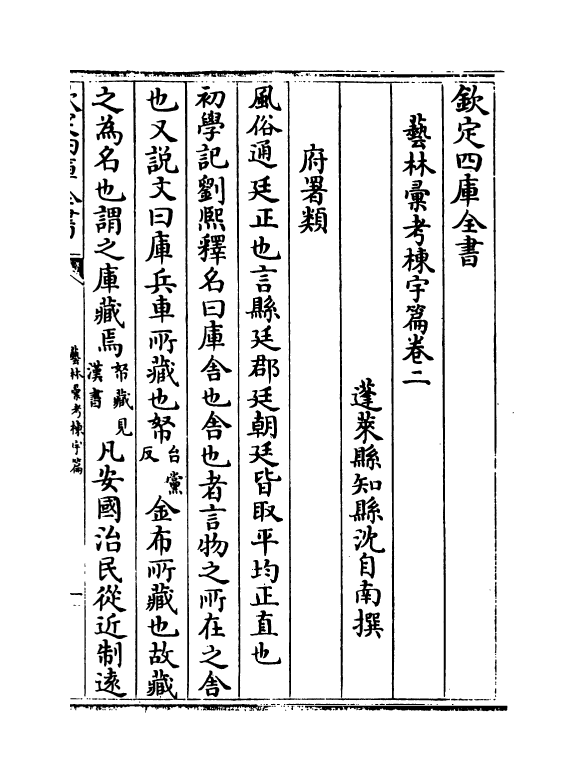 欽定四庫全書
藝林彙考棟宇篇卷二
蓬萊縣知縣沈自南撰
府署類
風俗通廷正也言縣廷郡廷朝廷皆取平均正直也
初學記劉熈釋名曰庫舍也舍也者言物之所在之舍
也又說文曰庫兵車所藏也帑台黨反金布所藏也故藏
之為名也謂之庫藏焉帑藏見漢書凡安國治民從近制遠
欽定四庫全書
藝林彙考棟宇篇
一